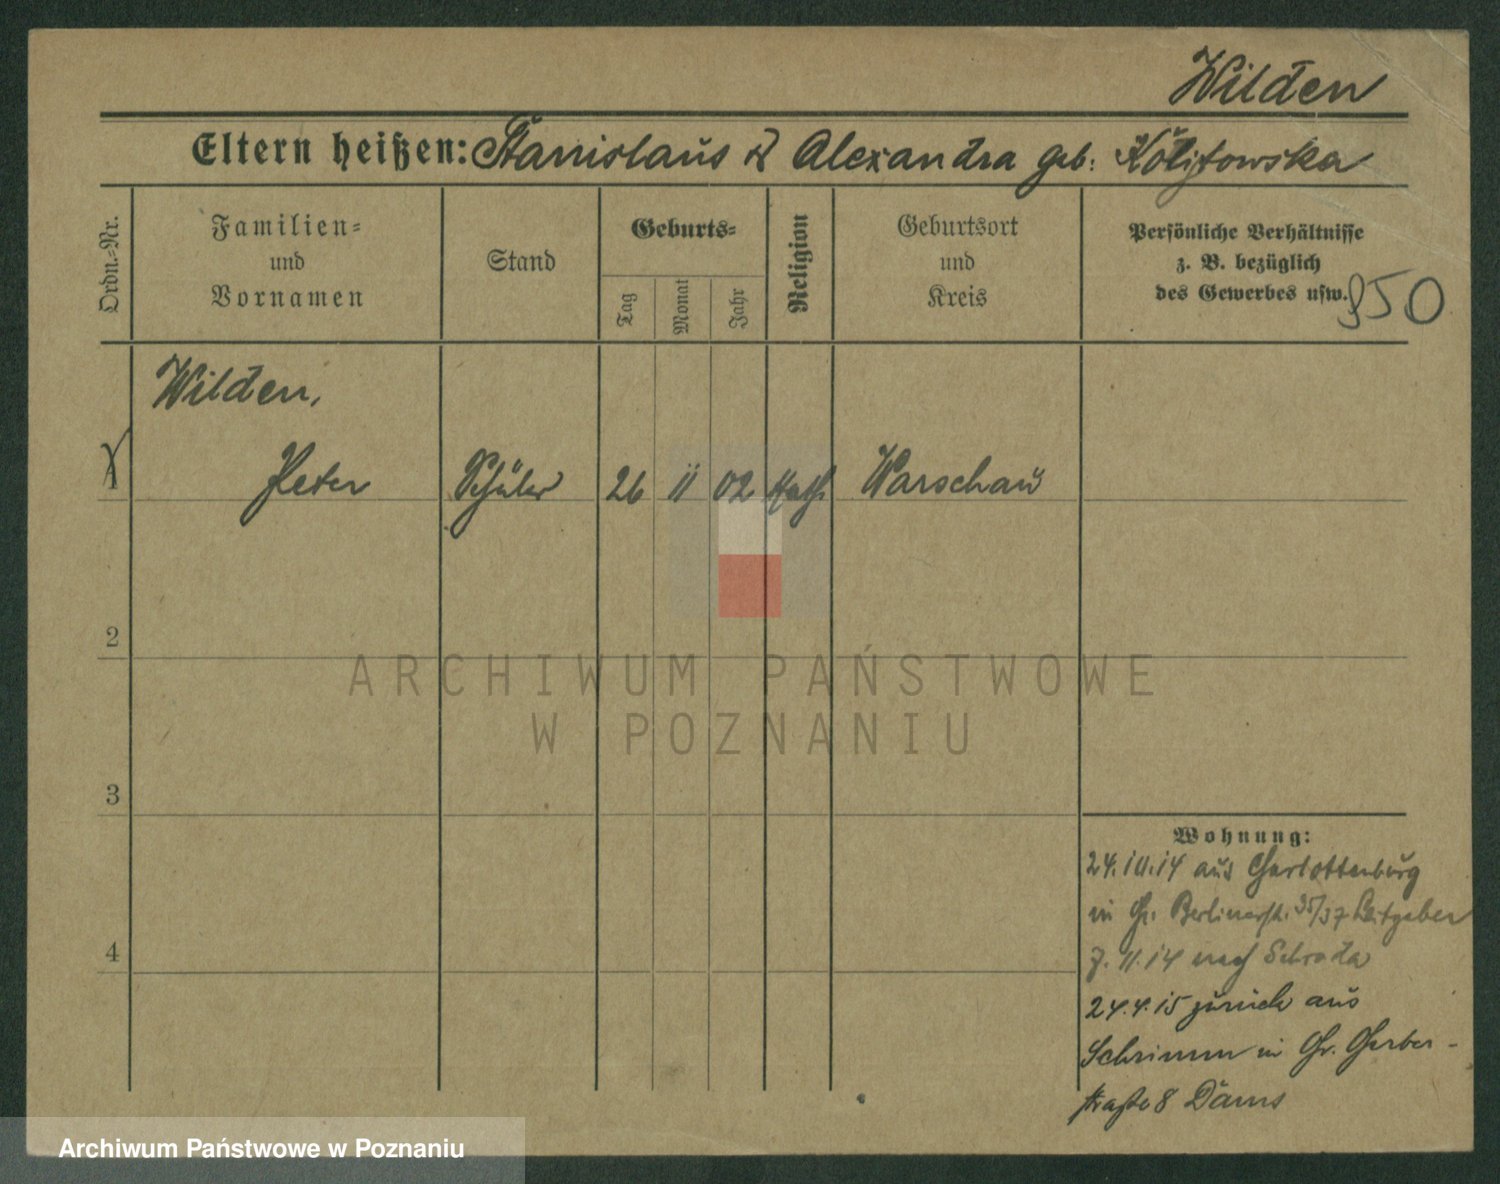 Wilden
Eltern heißen: Stanislaus & Alexandra geb.
Ordn.-Nr.
Familien-
und
Vornamen
Stand
Geburts-
Tag
Monat
Jahr
Religion
Geburtsort
und
Kreis
Persönliche Verhältnisse
z. B. bezüglich
des Gewerbes usw.
950
Wilden,
Peter Schüler 26 11 02 Kath. Warschau
2
3
4
ARCHIWUM PAŃSTWOWE
W POZNANIU
Wohnung:
24.10.14 aus Charlottenburg
in Gr. Berlinerstr. 35/37 Leitgeber
7. 11. 14 nach Schroda
24.4.15 zurück aus
Schrimm in Gr. Gerber-
straße 8
Archiwum Państwowe w Poznaniu